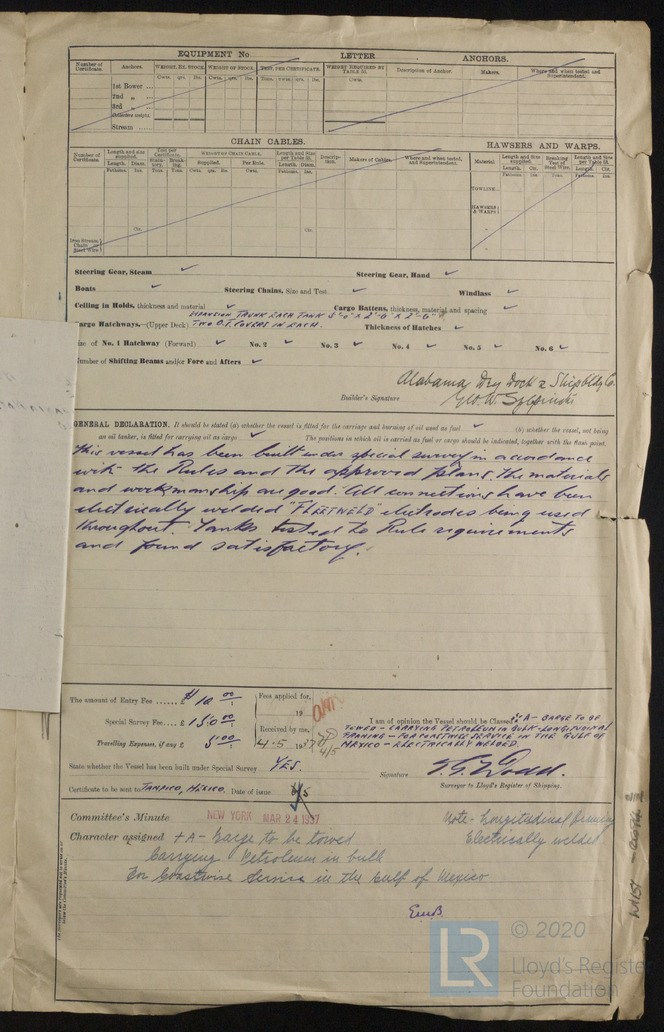 EQUIPMENT No LETTER ANCHORS.
Number of Certificate. Anchors. WEIGHT, EX. STOCK. WEIGHT OF STOCK. TEST, PER CERTIFICATE. WEIGHT REQUIRED BY TABLE 31. Description of Anchor. Makers. Where and when tested and Superintendent.
Cwts. qrs. lbs. Cwts. qrs. lbs. Tons. cwts. qrs. lbs. Cwts.
1st Bower
2nd „
3rd „
Collective weight.
Stream
CHAIN CABLES. HAWSERS AND WARPS.
Number of Certificate. Length and size supplied. Test per Certificate. WEIGHT OF CHAIN CABLE. Length and Size per Table 31. Description. Makers of Cables. Where and when tested, and Superintendent. Material. Length and size supplied. Breaking Test of Steel Wire. Length and Size per Table 31.
Length. Diam. Statutory. Breaking. Supplied. Per Rule. Length. Diam. Length. Cir. Length. Cir.
Fathoms. Ins. Tons. Tons. Cwts. qrs. lbs. Cwts. Fathoms. Ins. Fathoms. Ins. Tons. Fathoms. Ins.
TOWLINE
HAWSERS & WARPS
Cir. Cir.
Iron Stream Chain or Steel Wire
Steering Gear, Steam ✓ Steering Gear, Hand ✓
Boats ✓ Steering Chains, Size and Test ✓ Windlass ✓
Ceiling in Holds, thickness and material ✓ Cargo Battens, thickness, material and spacing ✓
EXPANSION TRUNK EACH TANK
Cargo Hatchways.—(Upper Deck) TWO O.T. COVERS IN EACH. Thickness of Hatches ✓
Size of No. 1 Hatchway (Forward) ✓ No. 2 ✓ No. 3 ✓ No. 4 ✓ No. 5 ✓ No. 6 ✓
Number of Shifting Beams and/or Fore and Afters ✓
Alabama Dry Dock & Shipbldg Co.
Builder's Signature Geo. W.
GENERAL DECLARATION. It should be stated (a) whether the vessel is fitted for the carriage and burning of oil used as fuel ✓ (b) whether the vessel, not being
an oil tanker, is fitted for carrying oil as cargo ✓ The positions in which oil is carried as fuel or cargo should be indicated, together with the flash point.
This vessel has been built under special survey in accordance
with the Rules and the approved plans, the materials
and workmanship are good. All connections have been
electrically welded "FLEETWELD" electrodes being used
throughout. Tanks tested to Rule requirements
and found satisfactory.
The amount of Entry Fee ...... $ 10 00 Fees applied for,
19
Special Survey Fee... £ 150 00 Received by me, I am of opinion the Vessel should be Classed "A - BARGE TO BE
TOWED - CARRYING PETROLEUM IN BULK - LONGITUDINAL
Travelling Expenses, if any £ 5 00 4-5 1937 FRAMING - FOR COASTWISE SERVICE IN THE GULF OF
MEXICO - ELECTRICALLY WELDED.
4/5
State whether the Vessel has been built under Special Survey YES. Signature
Surveyor to Lloyd's Register of Shipping.
Certificate to be sent to TAMPICO, MEXICO. Date of issue 4/5
Committee's Minute NEW YORK MAR 24 1937 Note - Longitudinal framing
Character assigned + A - Barge to be towed Electrically welded
Carrying Petroleum in bulk
For Coastwise Service in the Gulf of Mexico
© 2020
LR Lloyd's Register
Foundation